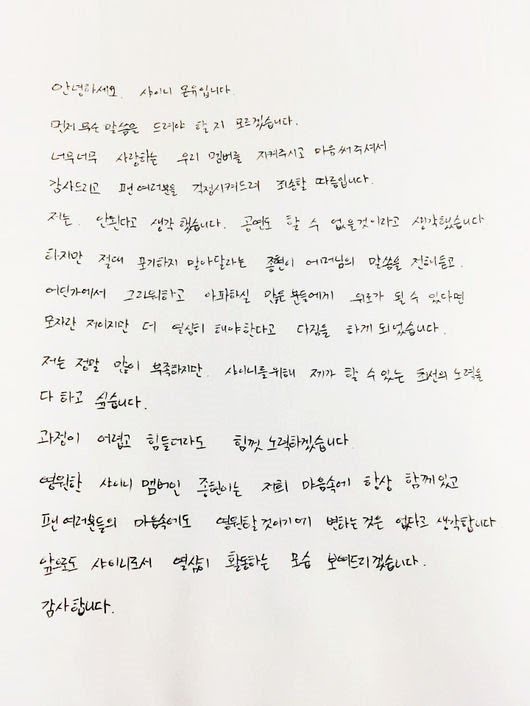 안녕하세요. 샤이니 온유입니다.
먼저 무슨 말씀을 드려야 할 지 모르겠습니다.
너무너무 사랑하는 우리 멤버를 지켜주시고 마음써주셔서
감사드리고 팬 여러분들 걱정시켜드려 죄송할 따름입니다.
저는. 안된다고 생각 했습니다. 공연도 할 수 없을것이라고 생각했습니다
하지만 절대 포기하지 말아달라는 종현이 어머님의 말씀을 전해듣고.
어딘가에서 그리워하고 아파하실 많은 분들에게 위로가 될 수 있다면
모자란 저이지만 더 열심히 해야한다고 다짐을 하게 되었습니다.
저는 정말 많이 부족하지만. 샤이니를위해 제가 할 수 있는 최선의 노력을
다 하고 싶습니다.
과정이 어렵고 힘들더라도 힘껏 노력하겠습니다
영원한 샤이니 멤버인 종현이는 저희 마음속에 항상 함께있고
팬 여러분들의 마음속에도 영원할것이기에 변하는것은 없다고 생각합니다
앞으로도 샤이니로서 열심히 활동하는 모습 보여드리겠습니다.
감사합니다.